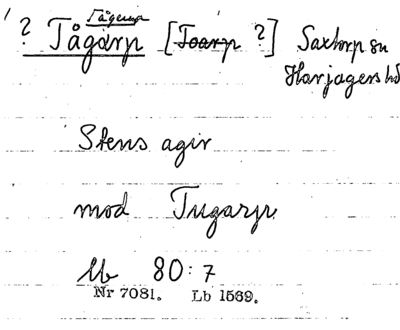 Tågerup
? Tågarp [Toarp ?] Saxtorp sn
Harjagers hd
Stens agir
mod Tugarp
Lb 80:7
Nr 7081. Lb 1569.